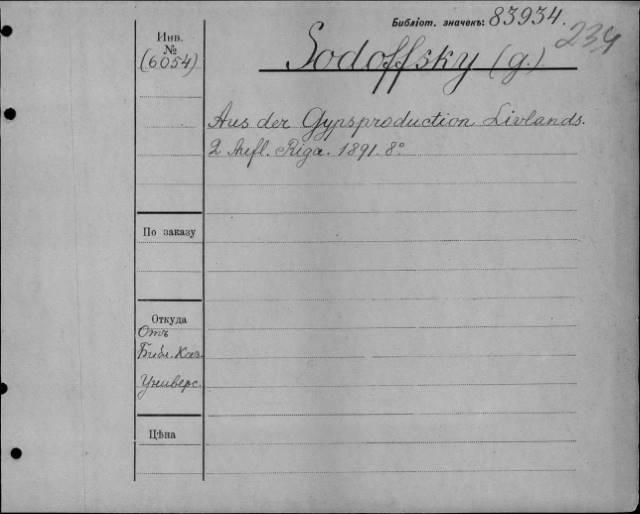 Библіот. значекъ: 83934.
234
Инв.
№
(6054)
Sodoffsky (g.)
Aus der Gypsproduction Livlands.
2 Aufl. Riga. 1891. 8°
По заказу
Откуда
Отъ
Библ. Каз.
Универс.
Цѣна